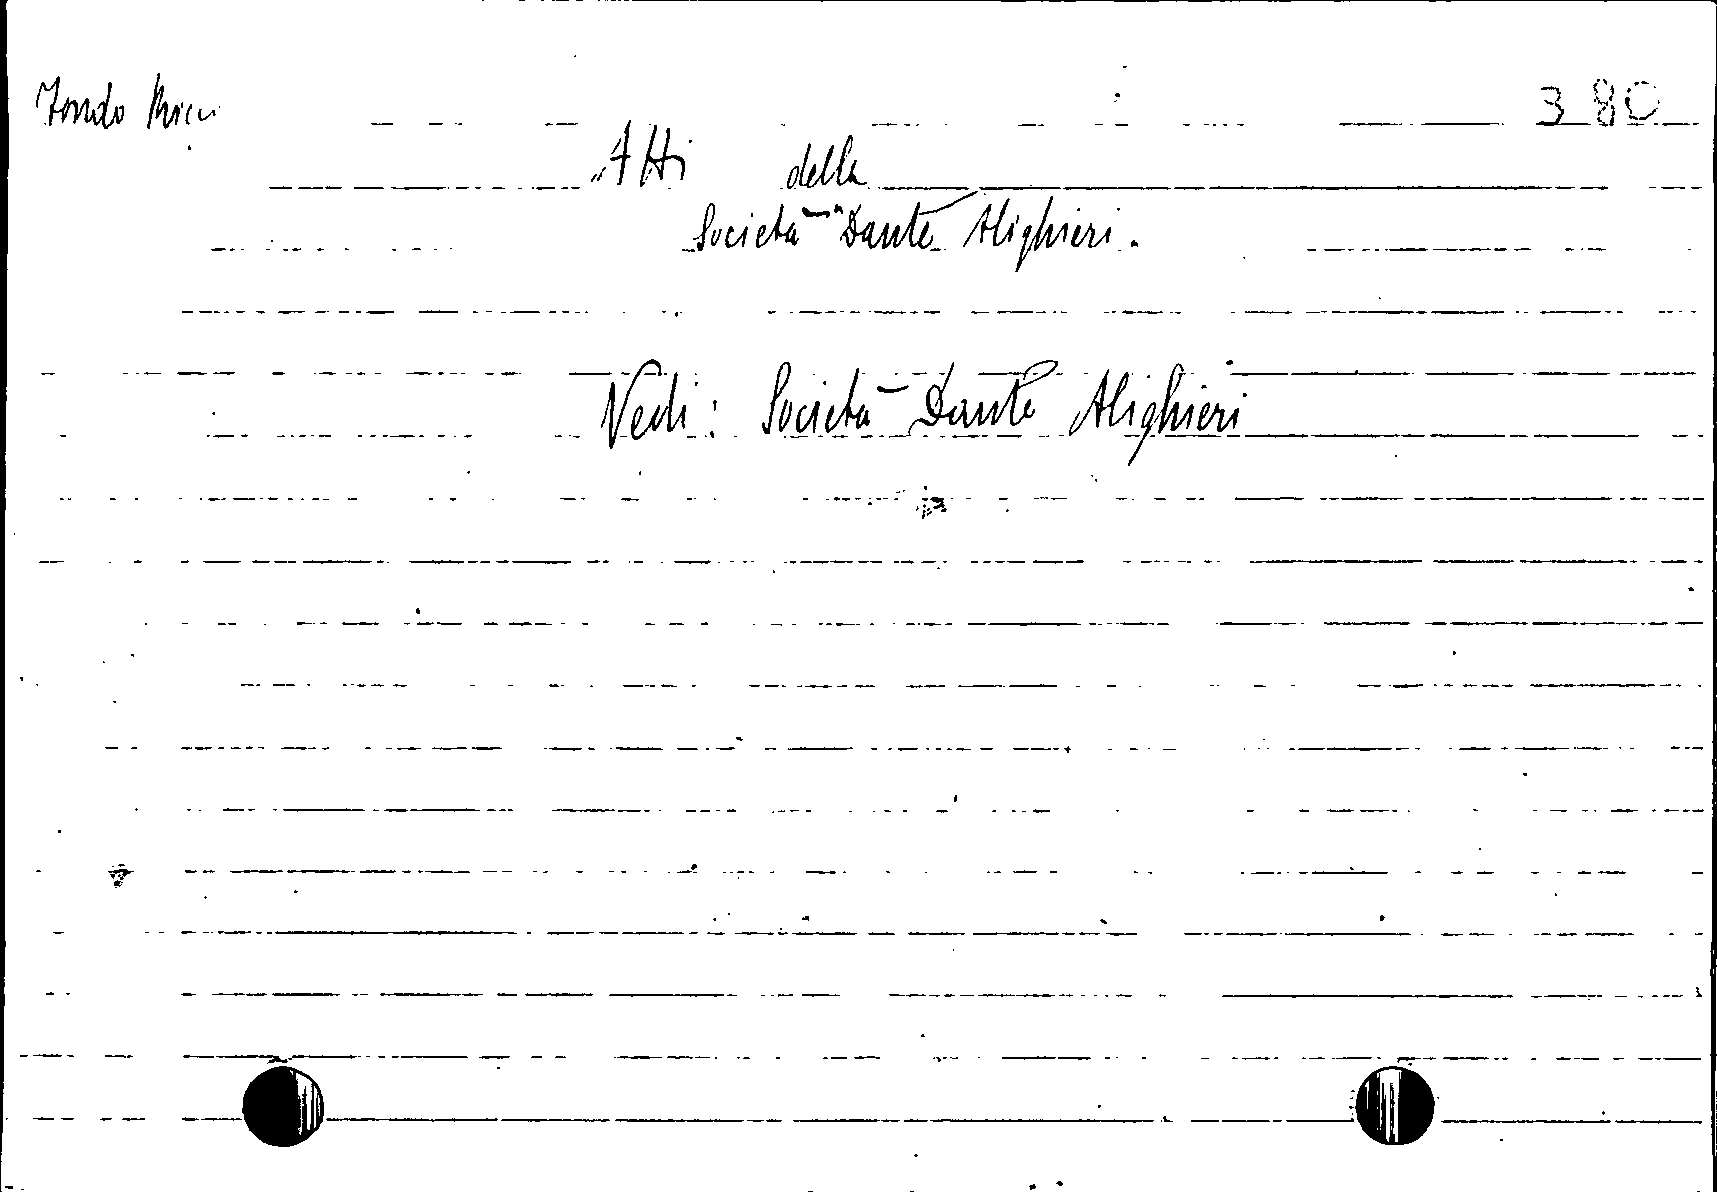 Fondo Ricci
380
Atti della
Società "Dante Alighieri.
Vedi: Società Dante Alighieri